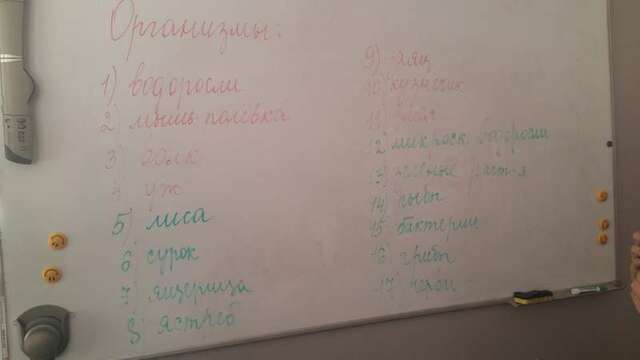 Организмы:
1) водоросли
2) мышь-полёвка
3)
4 уж
5) лиса
6) сурок
7) ящерица
8) ястреб
9)
10) кузнечик
11)
12) микроск. водоросли
13) зелёные раст-я
14) рыбы
15) бактерии
16) грибы
17) черви